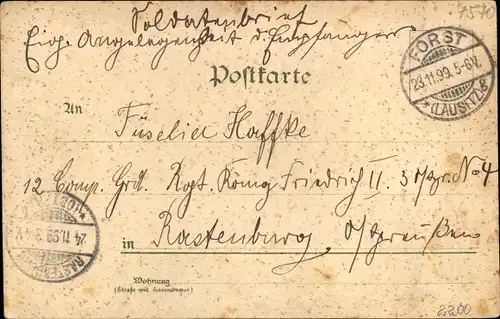 7570
Soldatenbrief
Eig. Angelegenheit d. Empfängers
Postkarte
FORST
23.11.99. 5-6V.
*(LAUSITZ)*
An
Füselier Haffke
12 Comp. Grd. Rgt. König Friedrich II. 3 No 4
24.11.99. 3
in Rastenburg O/Preußen
Wohnung
(Straße und Hausnummer)
2200